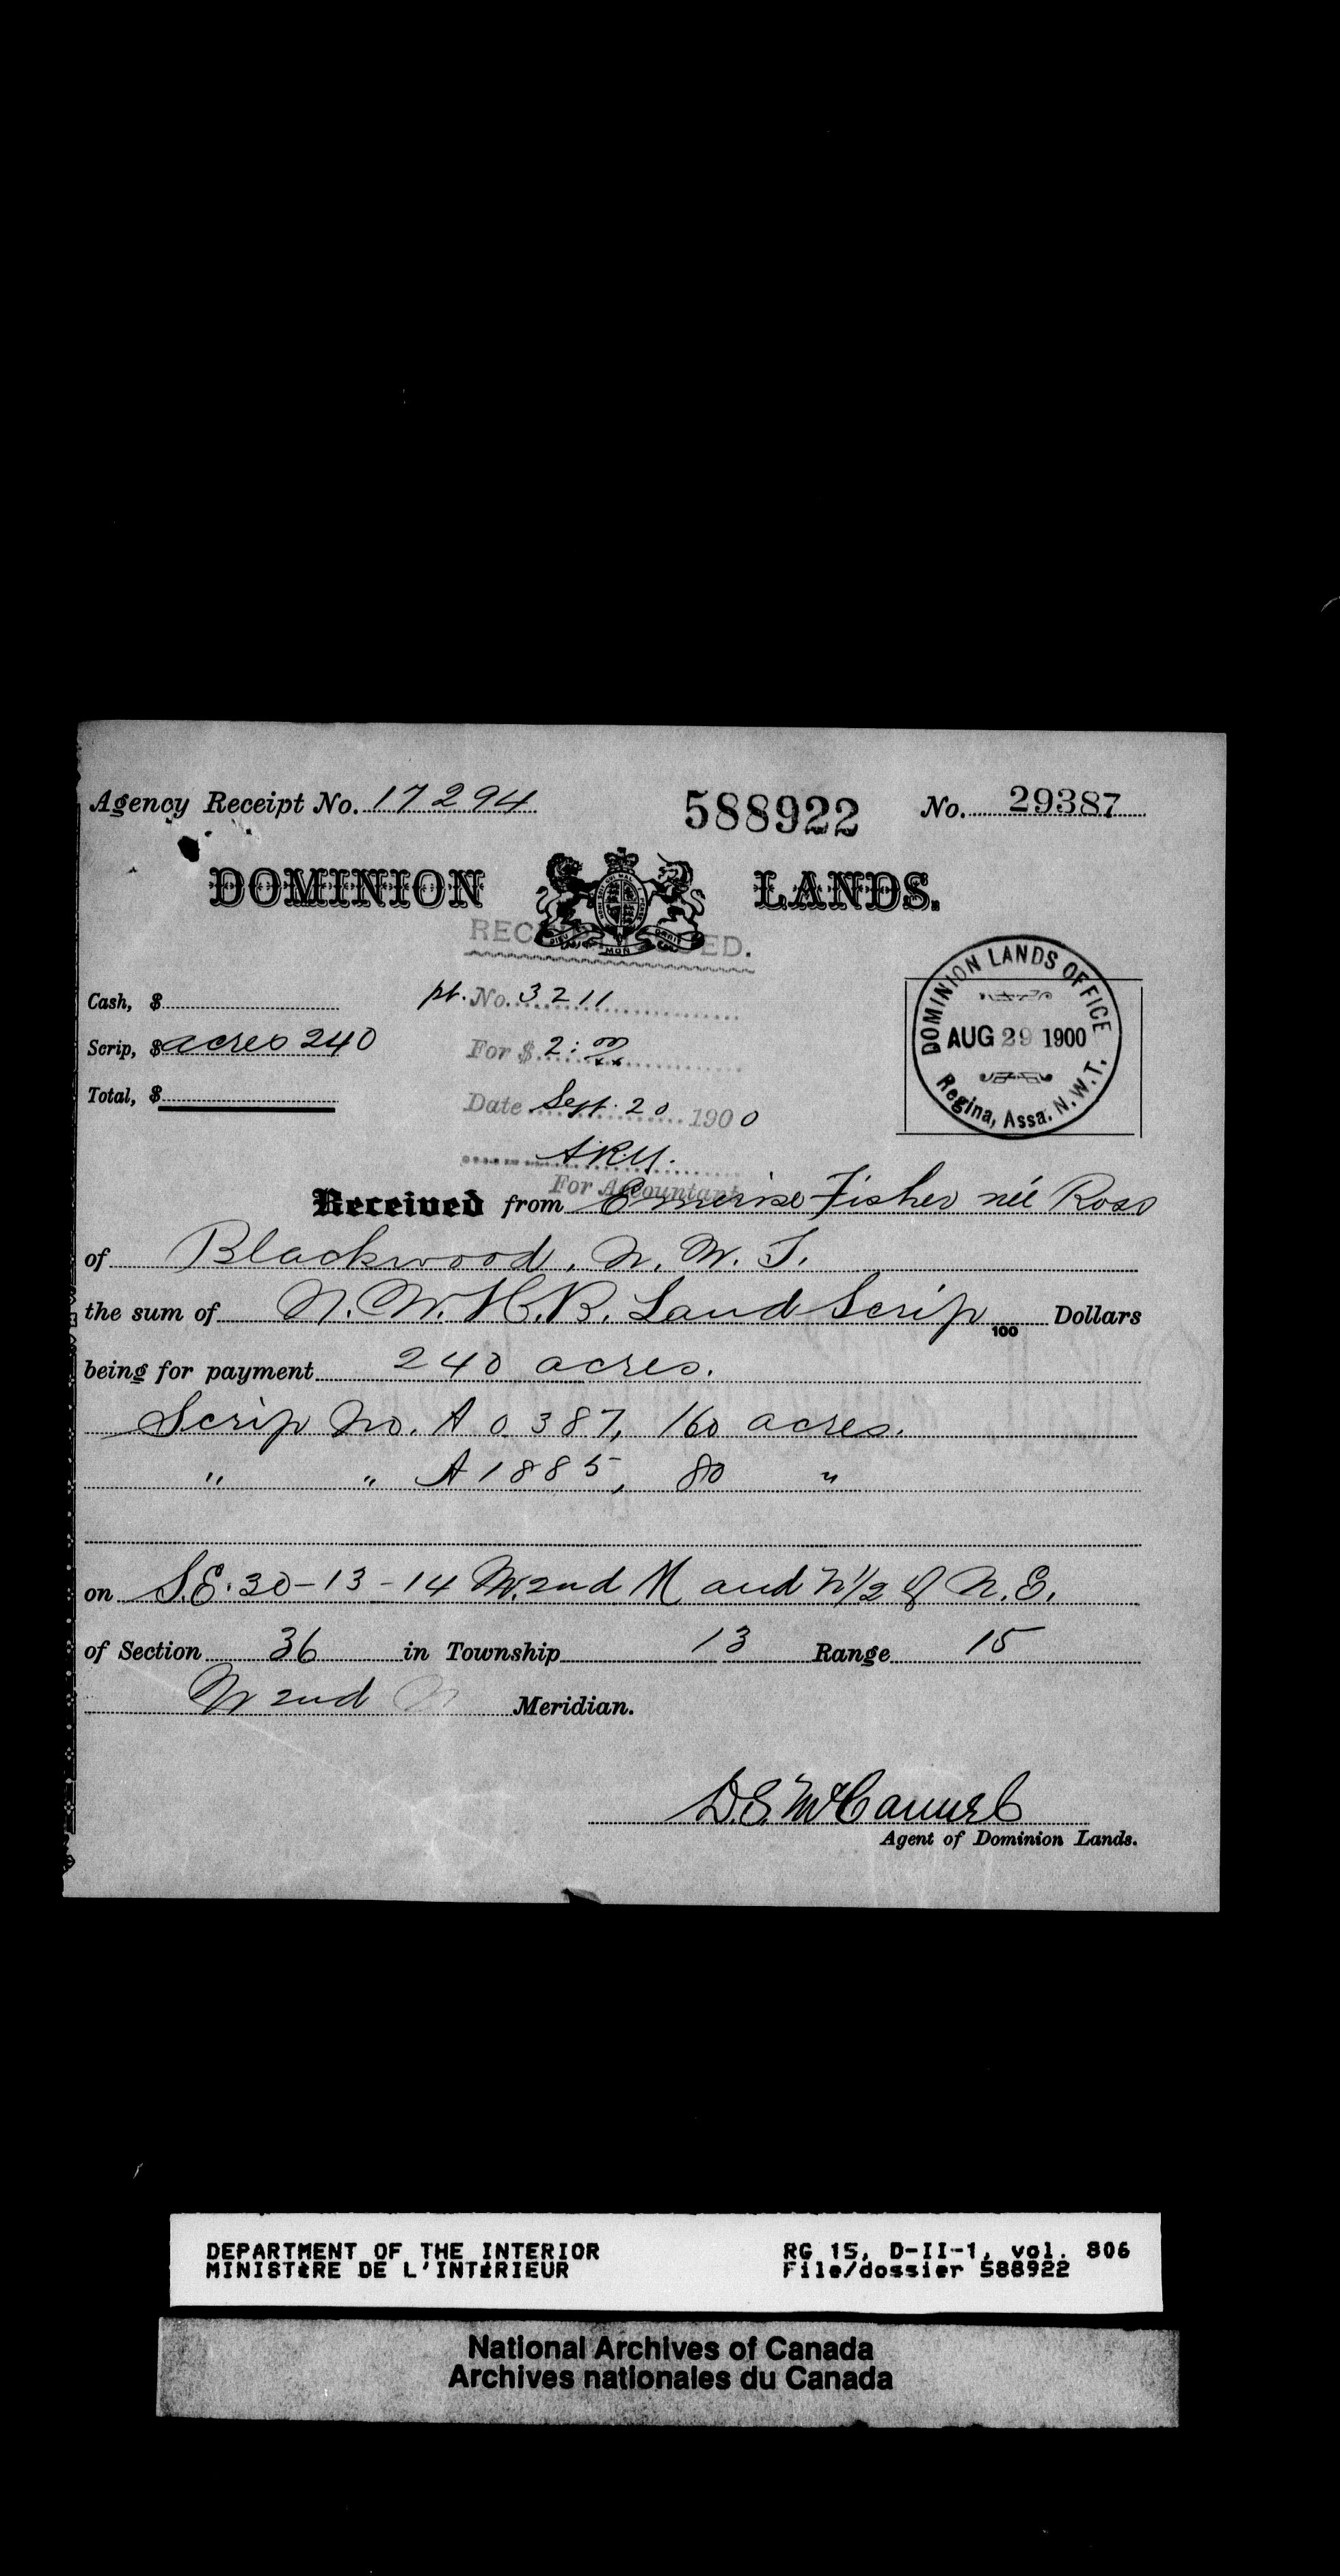 Agency Receipt No. 17294 588922 No. 29387
DOMINION LANDS.
REC ED.
Cash, $
pt. No. 3211
Scrip, $ acres 240
For $ 2.00
Total, $
Date Sept. 20 1900
For Accountant
DOMINION LANDS OFFICE
AUG 29 1900
Regina, Assa. N.W.T.
Received from Emerise Fisher née Ross
of Blackwood, N. W. T.
the sum of N. W. H. B. Land Scrip 100 Dollars
being for payment 240 acres.
Scrip No. A 0387, 160 acres.
" " A 1885, 80 "
on S.E. 30-13-14 W. 2nd M and N 1/2 of N. E.
of Section 36 in Township 13 Range 15
W 2nd Meridian.
Agent of Dominion Lands.
DEPARTMENT OF THE INTERIOR RG 15, D-II-1, vol. 806
MINISTÈRE DE L'INTÉRIEUR File/dossier 588922
National Archives of Canada
Archives nationales du Canada